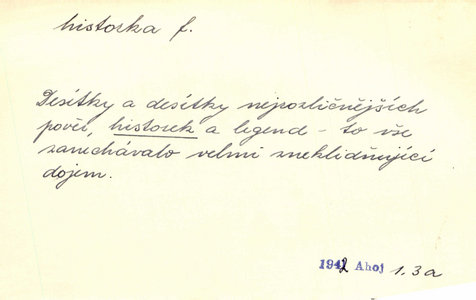 historka f.
Desítky a desítky nejrozličnějších
pověr, historek a legend – to vše
zanechávalo velmi zneklidňující
dojem.
1942 Ahoj 1.3a